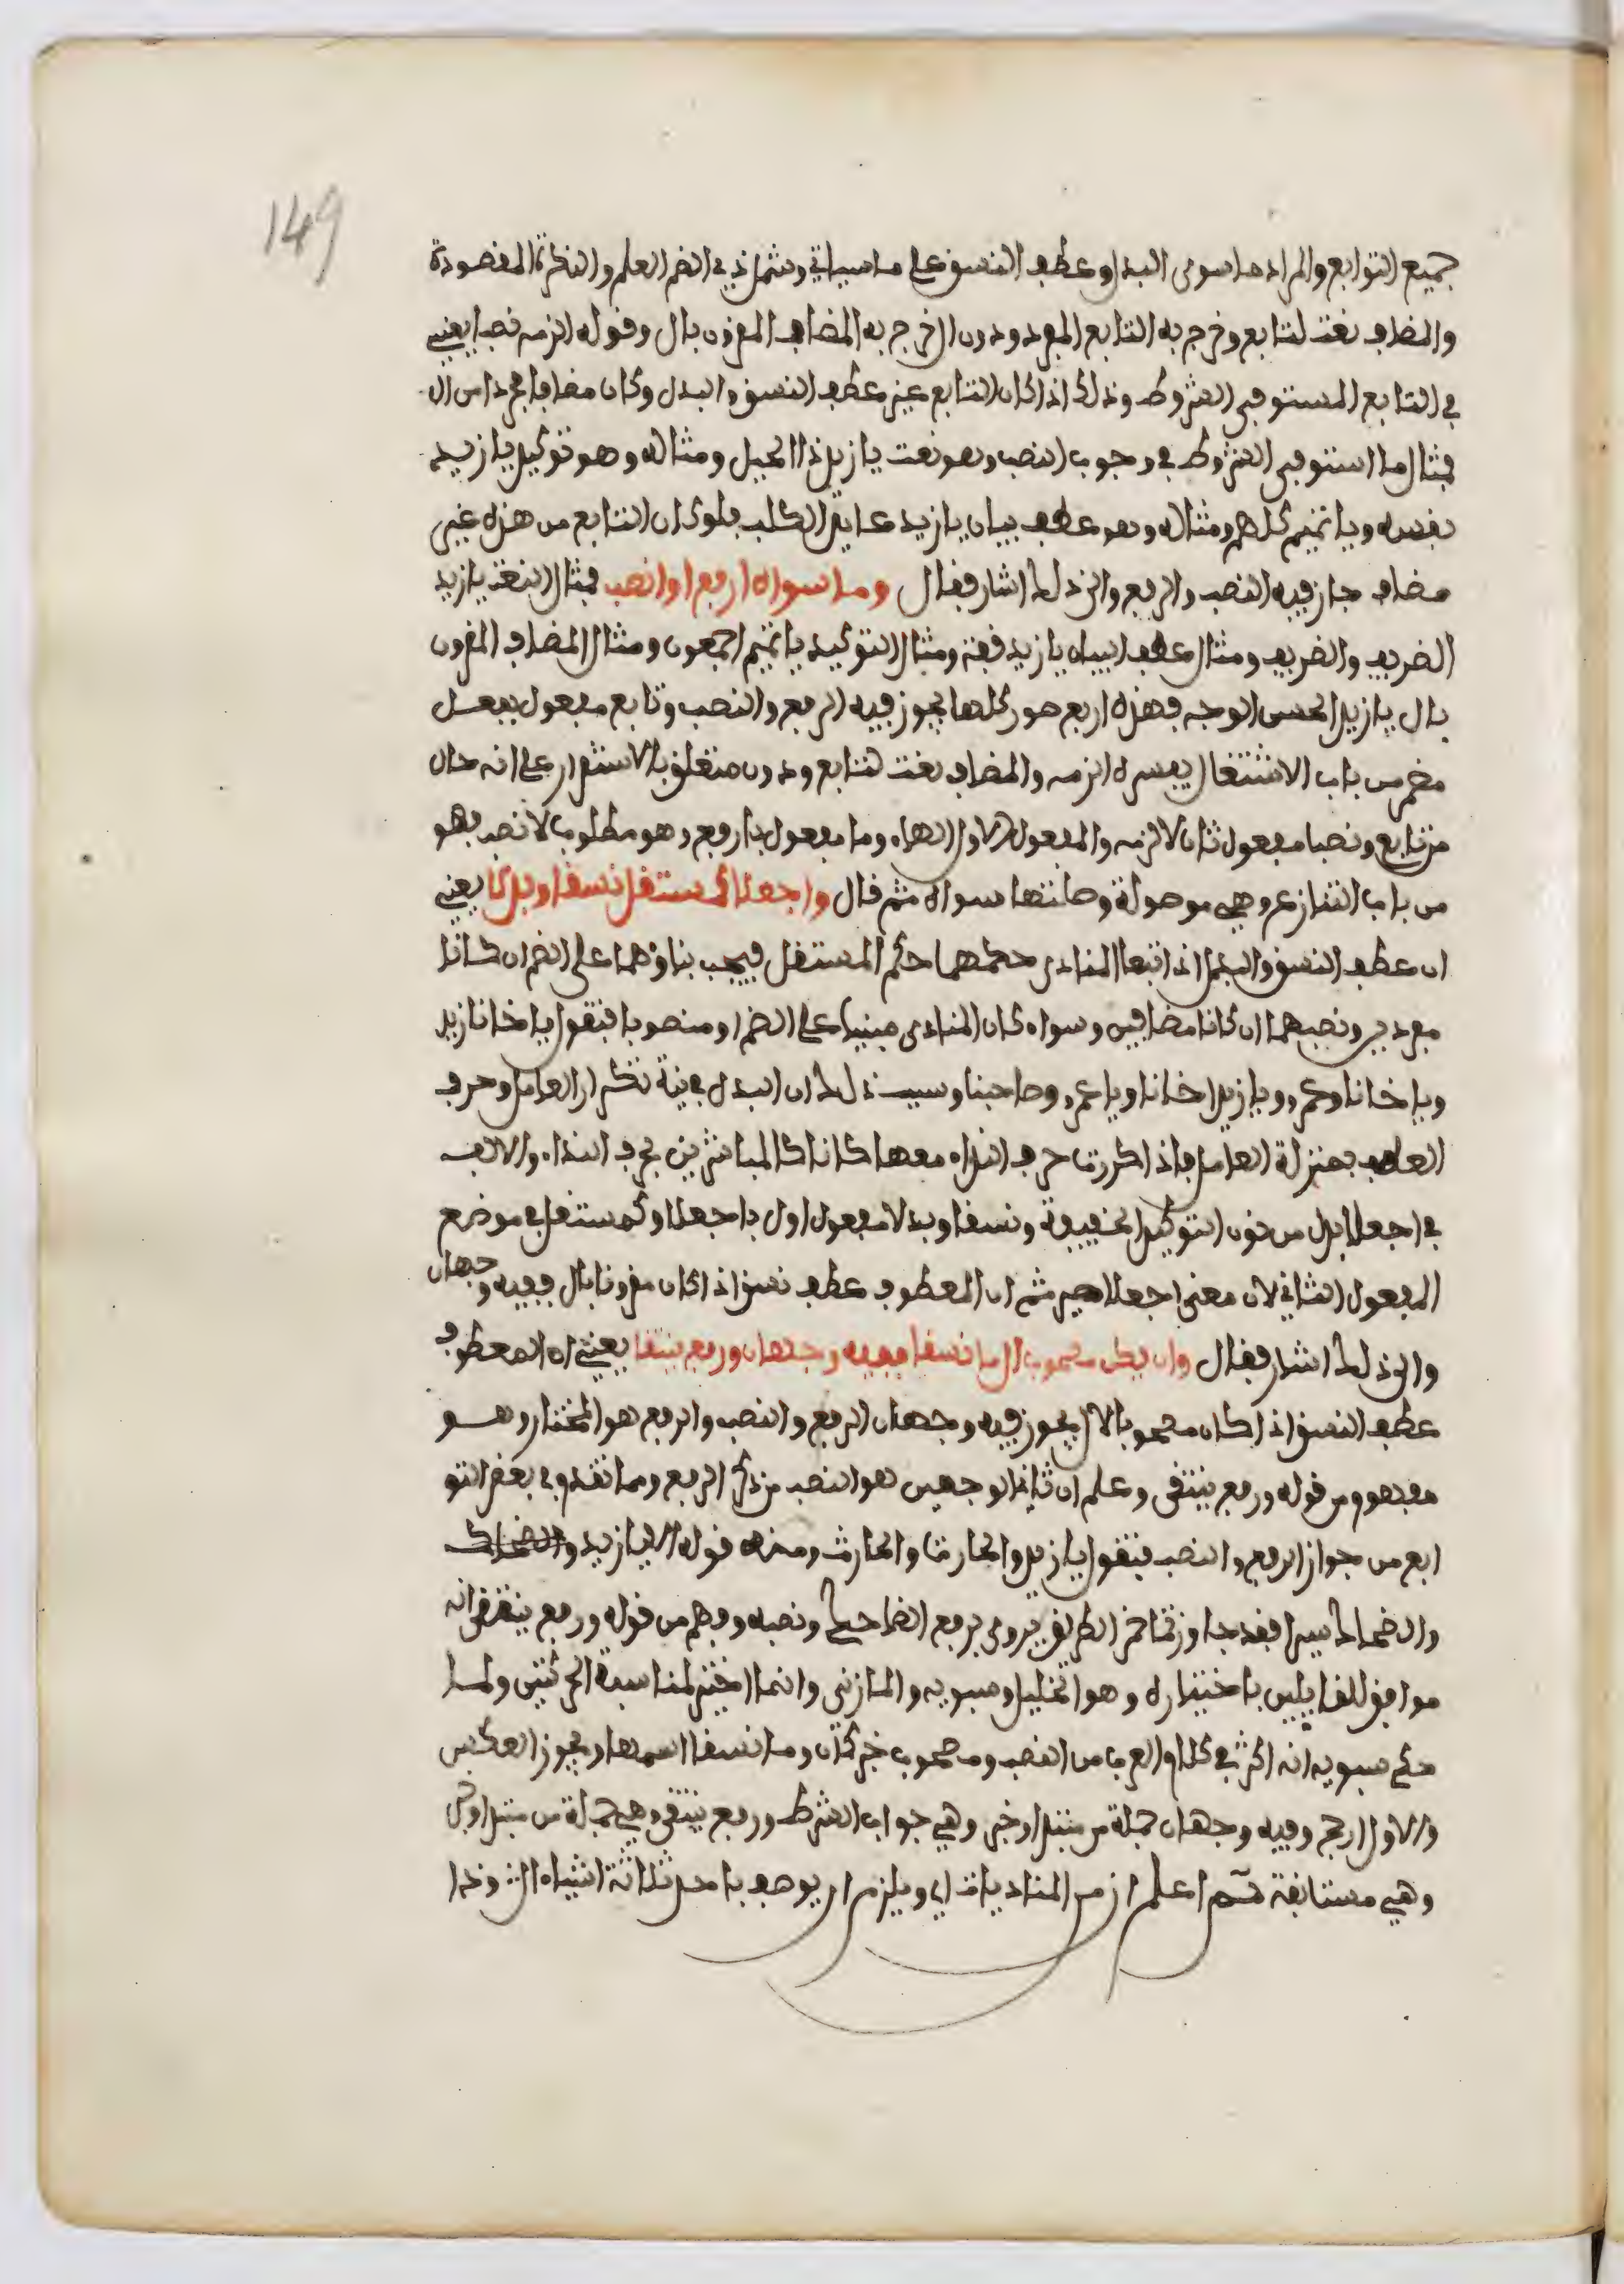 149
جميع التوابع والمراد ما سوى البدل وعطف النسق على ما سياتي وشمل ذي الضم العلم والنكرة المقصودة
والمضاف نعت لتابع وخرج به التابع المفرد ودون ال خرج به المضاف المقرون بال وقوله الزمه نصبا يعني
في التابع المستوفي الشروط وذلك اذا كان التابع غير عطف النسق والبدل وكان مضافا مجردا من ال
فمثال ما استوفى الشروط في وجوب النصب وهو نعت يا زيد ذا الحيل ومثاله وهو توكيد يا زيد
نفسه ويا تميم كلهم ومثاله وهو عطف بيان يا زيد عايد الكلب فلو كان التابع من هذه غير
مضاف جاز فيه النصب والرفع والى ذلك اشار فقال وما سواه ارفع او انصب فمثال النعت يا زيد
الظريف والظريف ومثال عطف البيان يا زيد قفة ومثال التوكيد يا تميم اجمعون ومثال المضاف المقرون
بال يا زيد الحسن الوجه فهذه اربع صور كلها يجوز فيه الرفع والنصب وتابع مفعول بفعل
مضمر من باب الاشتغال يفسره الزمه والمضاف نعت لتابع ودون متعلق بالاستقرار على انه حال
من تابع ونصبا مفعول ثان لالزمه والمفعول الاول الهاء وما مفعول بارفع وهو مطلوب لانصب فهو
من باب التنازع وهي موصولة وصلتها سواه ثم قال واجعلا كمستقل نسقا وبدلا يعني
ان عطف النسق والبدل اذا تبعا المنادى حكمهما حكم المستقل فيجب بناؤهما على الضم ان كانا
مفردين ونصبهما ان كانا مضافين وسواء كان المنادى مبنيا على الضم او منصوبا فتقول يا اخانا زيد
ويا اخانا وعمرو ويا زيد اخانا ويا عمرو وصاحبنا وسبب ذلك ان البدل في نية تكرار العامل وحرف
العطف بمنزلة العامل فاذا كررت حرف النداء معها كانا كالمباشرين بحرف النداء والالف
في اجعلا بدل من نون التوكيد الخفيفة ونسقا وبدلا مفعول اول باجعلا وكمستقل في موضع
المفعول الثاني لان معنى اجعلا صير ثم ان المعطوف عطف نسق اذا كان مقرونا بال ففيه وجهان
والى ذلك اشار فقال وان يكن مصحوب ال ما نسقا ففيه وجهان ورفع ينتقا يعني ان المعطوف
عطف النسق اذا كان مصحوبا لال يجوز فيه وجهان الرفع والنصب والرفع هو المختار وهو
مفهوم من قوله ورفع ينتقى وعلم ان ثاني الوجهين هو النصب من ذكر الرفع ومما تقدم في بعض التو
ابع من جواز الرفع والنصب فتقول يا زيد والحارث والحارث ومنه قوله الا يا زيد والضحاك
والضحاك سيرا فقد جاوزتما خمر الطريق يروى برفع الضحاك ونصبه وفهم من قوله ورفع ينتقى انه
موافق للقايلين باختياره وهو الخليل وسبويه والمازني وانما اختير لمناسبة الحركتين ولما
حكى سبويه انه اكثر في كلام العرب من النصب ومصحوب خبر كان وما نسقا اسمها ويجوز العكس
والاول ارجح وفيه وجهان جملة من مبتدا وخبر وهي جواب الشرط ورفع ينتقى وهي جملة من مبتدا وخبر
وهي مستانفة ثم اعلم ان من المناديات اي ويلزم ان يوصف باحد ثلاثة اشياء ال وذا